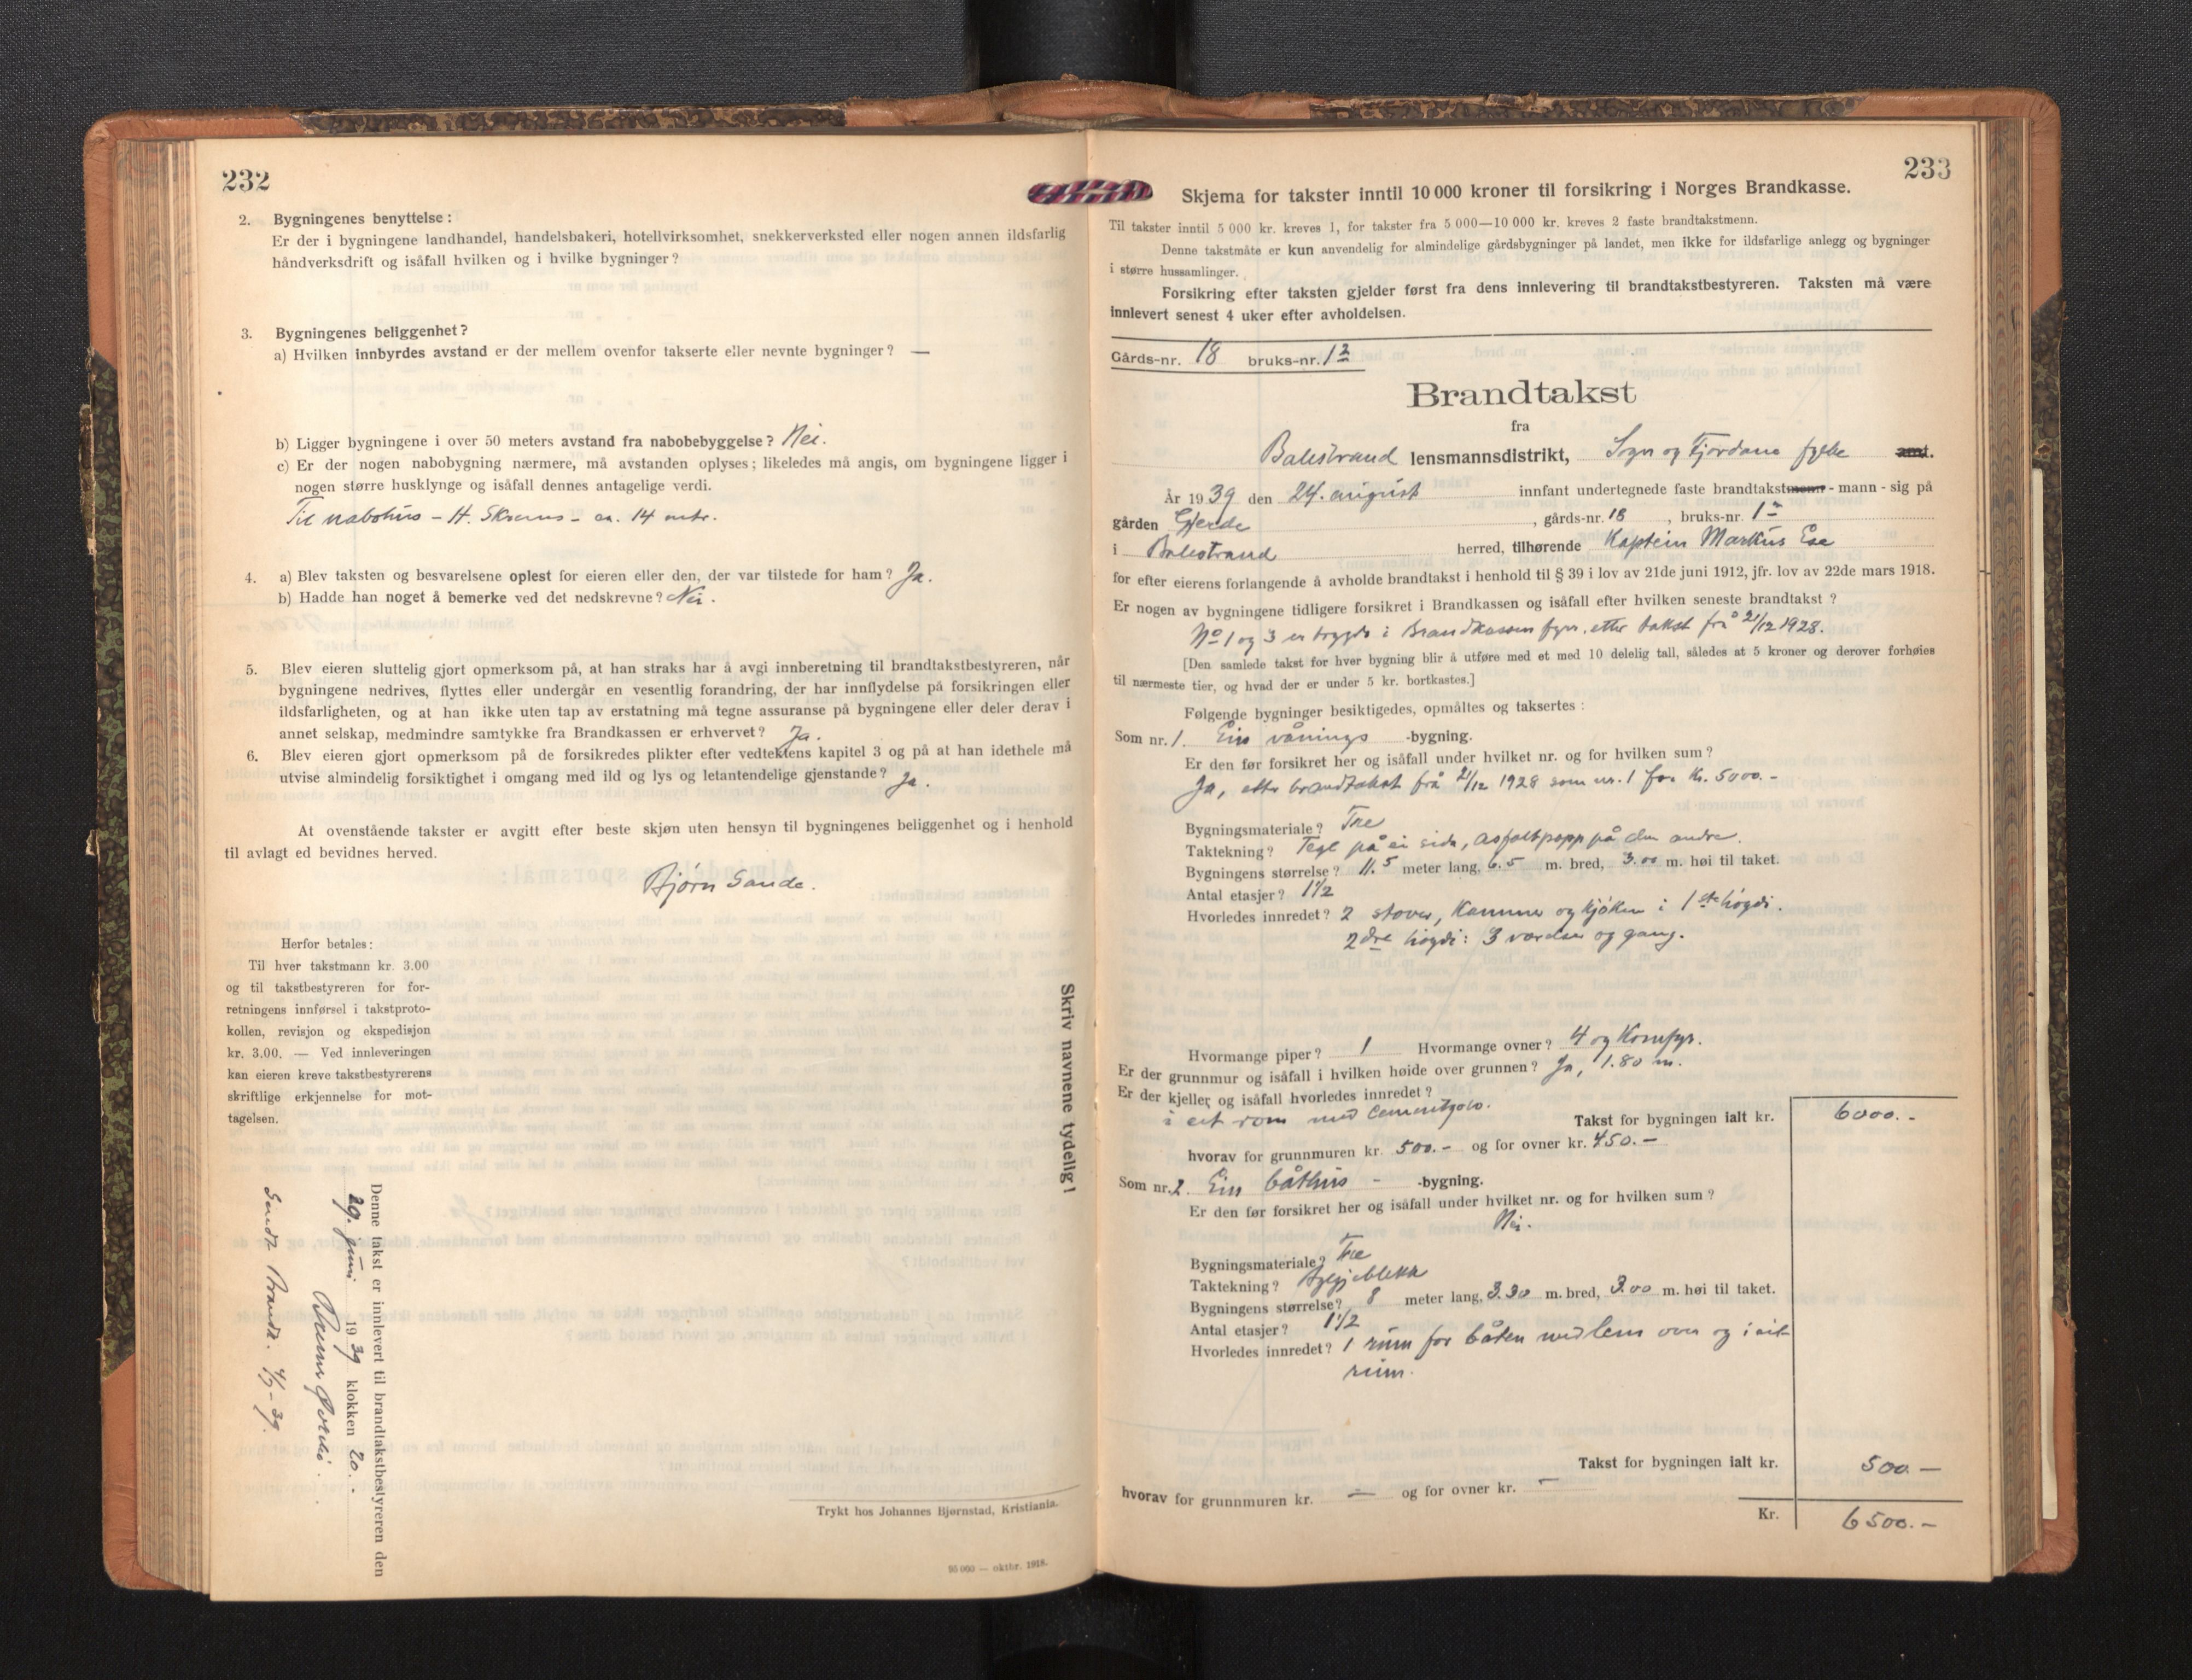 232
2. Bygningenes benyttelse :
Er der i bygningene landhandel, handelsbakeri, hotellvirksomhet, snekkerverksted eller nogen annen ildsfarlig
håndverksdrift og isåfall hvilken og i hvilke bygninger ?
3. Bygningenes beliggenhet ?
a) Hvilken innbyrdes avstand er der mellem ovenfor takserte eller nevnte bygninger ? —
b) Ligger bygningene i over 50 meters avstand fra nabobebyggelse ? Nei.
c) Er der nogen nabobygning nærmere, må avstanden oplyses ; likeledes må angis, om bygningene ligger i
nogen større husklynge og isåfall dennes antagelige verdi.
Til nabohus – H. – ca. 14 mtr.
4. a) Blev taksten og besvarelsene oplest for eieren eller den, der var tilstede for ham ? Ja.
b) Hadde han noget å bemerke ved det nedskrevne ? Nei.
5. Blev eieren sluttelig gjort opmerksom på, at han straks har å avgi innberetning til brandtakstbestyreren, når
bygningene nedrives, flyttes eller undergår en vesentlig forandring, der har innflydelse på forsikringen eller
ildsfarligheten, og at han ikke uten tap av erstatning må tegne assuranse på bygningene eller deler derav i
annet selskap, medmindre samtykke fra Brandkassen er erhvervet ? Ja.
6. Blev eieren gjort opmerksom på de forsikredes plikter efter vedtektens kapitel 3 og på at han idethele må
utvise almindelig forsiktighet i omgang med ild og lys og letantendelige gjenstande ? Ja.
At ovenstående takster er avgitt efter beste skjøn uten hensyn til bygningenes beliggenhet og i henhold
til avlagt ed bevidnes herved.
Bjørn Sande.
Herfor betales :
Til hver takstmann kr. 3.00
og til takstbestyreren for for-
retningens innførsel i takstproto-
kollen, revisjon og ekspedisjon
kr. 3.00. — Ved innleveringen
kan eieren kreve takstbestyrerens
skriftlige erkjennelse for mot-
tagelsen.
Skriv navnene tydelig !
Denne takst er innlevert til brandtakstbestyreren den
29. juni 1939 klokken 20.-
Sendt Brandk. -39.
Trykt hos Johannes Bjørnstad, Kristiania.
— oktbr. 1918.
233
Skjema for takster inntil 10 000 kroner til forsikring i Norges Brandkasse.
Til takster inntil 5 000 kr. kreves 1, for takster fra 5 000—10 000 kr. kreves 2 faste brandtakstmenn.
Denne takstmåte er kun anvendelig for almindelige gårdsbygninger på landet, men ikke for ildsfarlige anlegg og bygninger
i større hussamlinger.
Forsikring efter taksten gjelder først fra dens innlevering til brandtakstbestyreren. Taksten må være
innlevert senest 4 uker efter avholdelsen.
Gårds-nr. 18 bruks-nr.
Brandtakst
fra
Balestrand lensmannsdistrikt, Sogn og Fjordane fylke amt.
År 1939 den 24. august innfant undertegnede faste brandtakstmenn - mann - sig på
gården Gjerde , gårds-nr. 18 , bruks-nr.
i Balestrand herred, tilhørende Kaptein Markus Ese
for efter eierens forlangende å avholde brandtakst i henhold til § 39 i lov av 21de juni 1912, jfr. lov av 22de mars 1918.
Er nogen av bygningene tidligere forsikret i Brandkassen og isåfall efter hvilken seneste brandtakst ?
No 1 og 3 er trygda i Brandkassen fyrr, etter takst frå 21/12 1928.
[Den samlede takst for hver bygning blir å utføre med et med 10 delelig tall, således at 5 kroner og derover forhøies
til nærmeste tier, og hvad der er under 5 kr. bortkastes.]
Følgende bygninger besiktigedes, opmåltes og taksertes :
Som nr. 1. Ein vånings -bygning.
Er den før forsikret her og isåfall under hvilket nr. og for hvilken sum ?
Ja, etter brandtakst frå 21/12 1928 som nr. 1 for kr. 5000.-
Bygningsmateriale ? Tre
Taktekning ? Tegl på ei side, asfaltpapp på den andre.
Bygningens størrelse ? 11.5 meter lang, 6.5 m. bred, 3.00 m. høi til taket.
Antal etasjer ? 1 1/2
Hvorledes innredet ? 2 stover, kammer og kjøken i 1ste høgdi.
2dre høgdi: 3 værelser og gang.
Hvormange piper ? 1 Hvormange ovner ? 4 og komfyr.
Er der grunnmur og isåfall i hvilken høide over grunnen ? Ja, 1.80 m.
Er der kjeller og isåfall hvorledes innredet ?
i eit rom med cementgolv.
Takst for bygningen ialt kr. 6000.-
hvorav for grunnmuren kr. 500.- og for ovner kr. 450.-
Som nr. 2. Ein båthus - -bygning.
Er den før forsikret her og isåfall under hvilket nr. og for hvilken sum ?
Nei.
Bygningsmateriale ? Tre
Taktekning ? Bylgjeblekk
Bygningens størrelse ? 8 meter lang, 3.30 m. bred, 3.00 m. høi til taket.
Antal etasjer ? 1 1/2
Hvorledes innredet ? 1 rum for båten med lem over og i eit
rum.
Takst for bygningen ialt kr. 500.-
hvorav for grunnmuren kr. — og for ovner kr. —
Kr. 6500.-